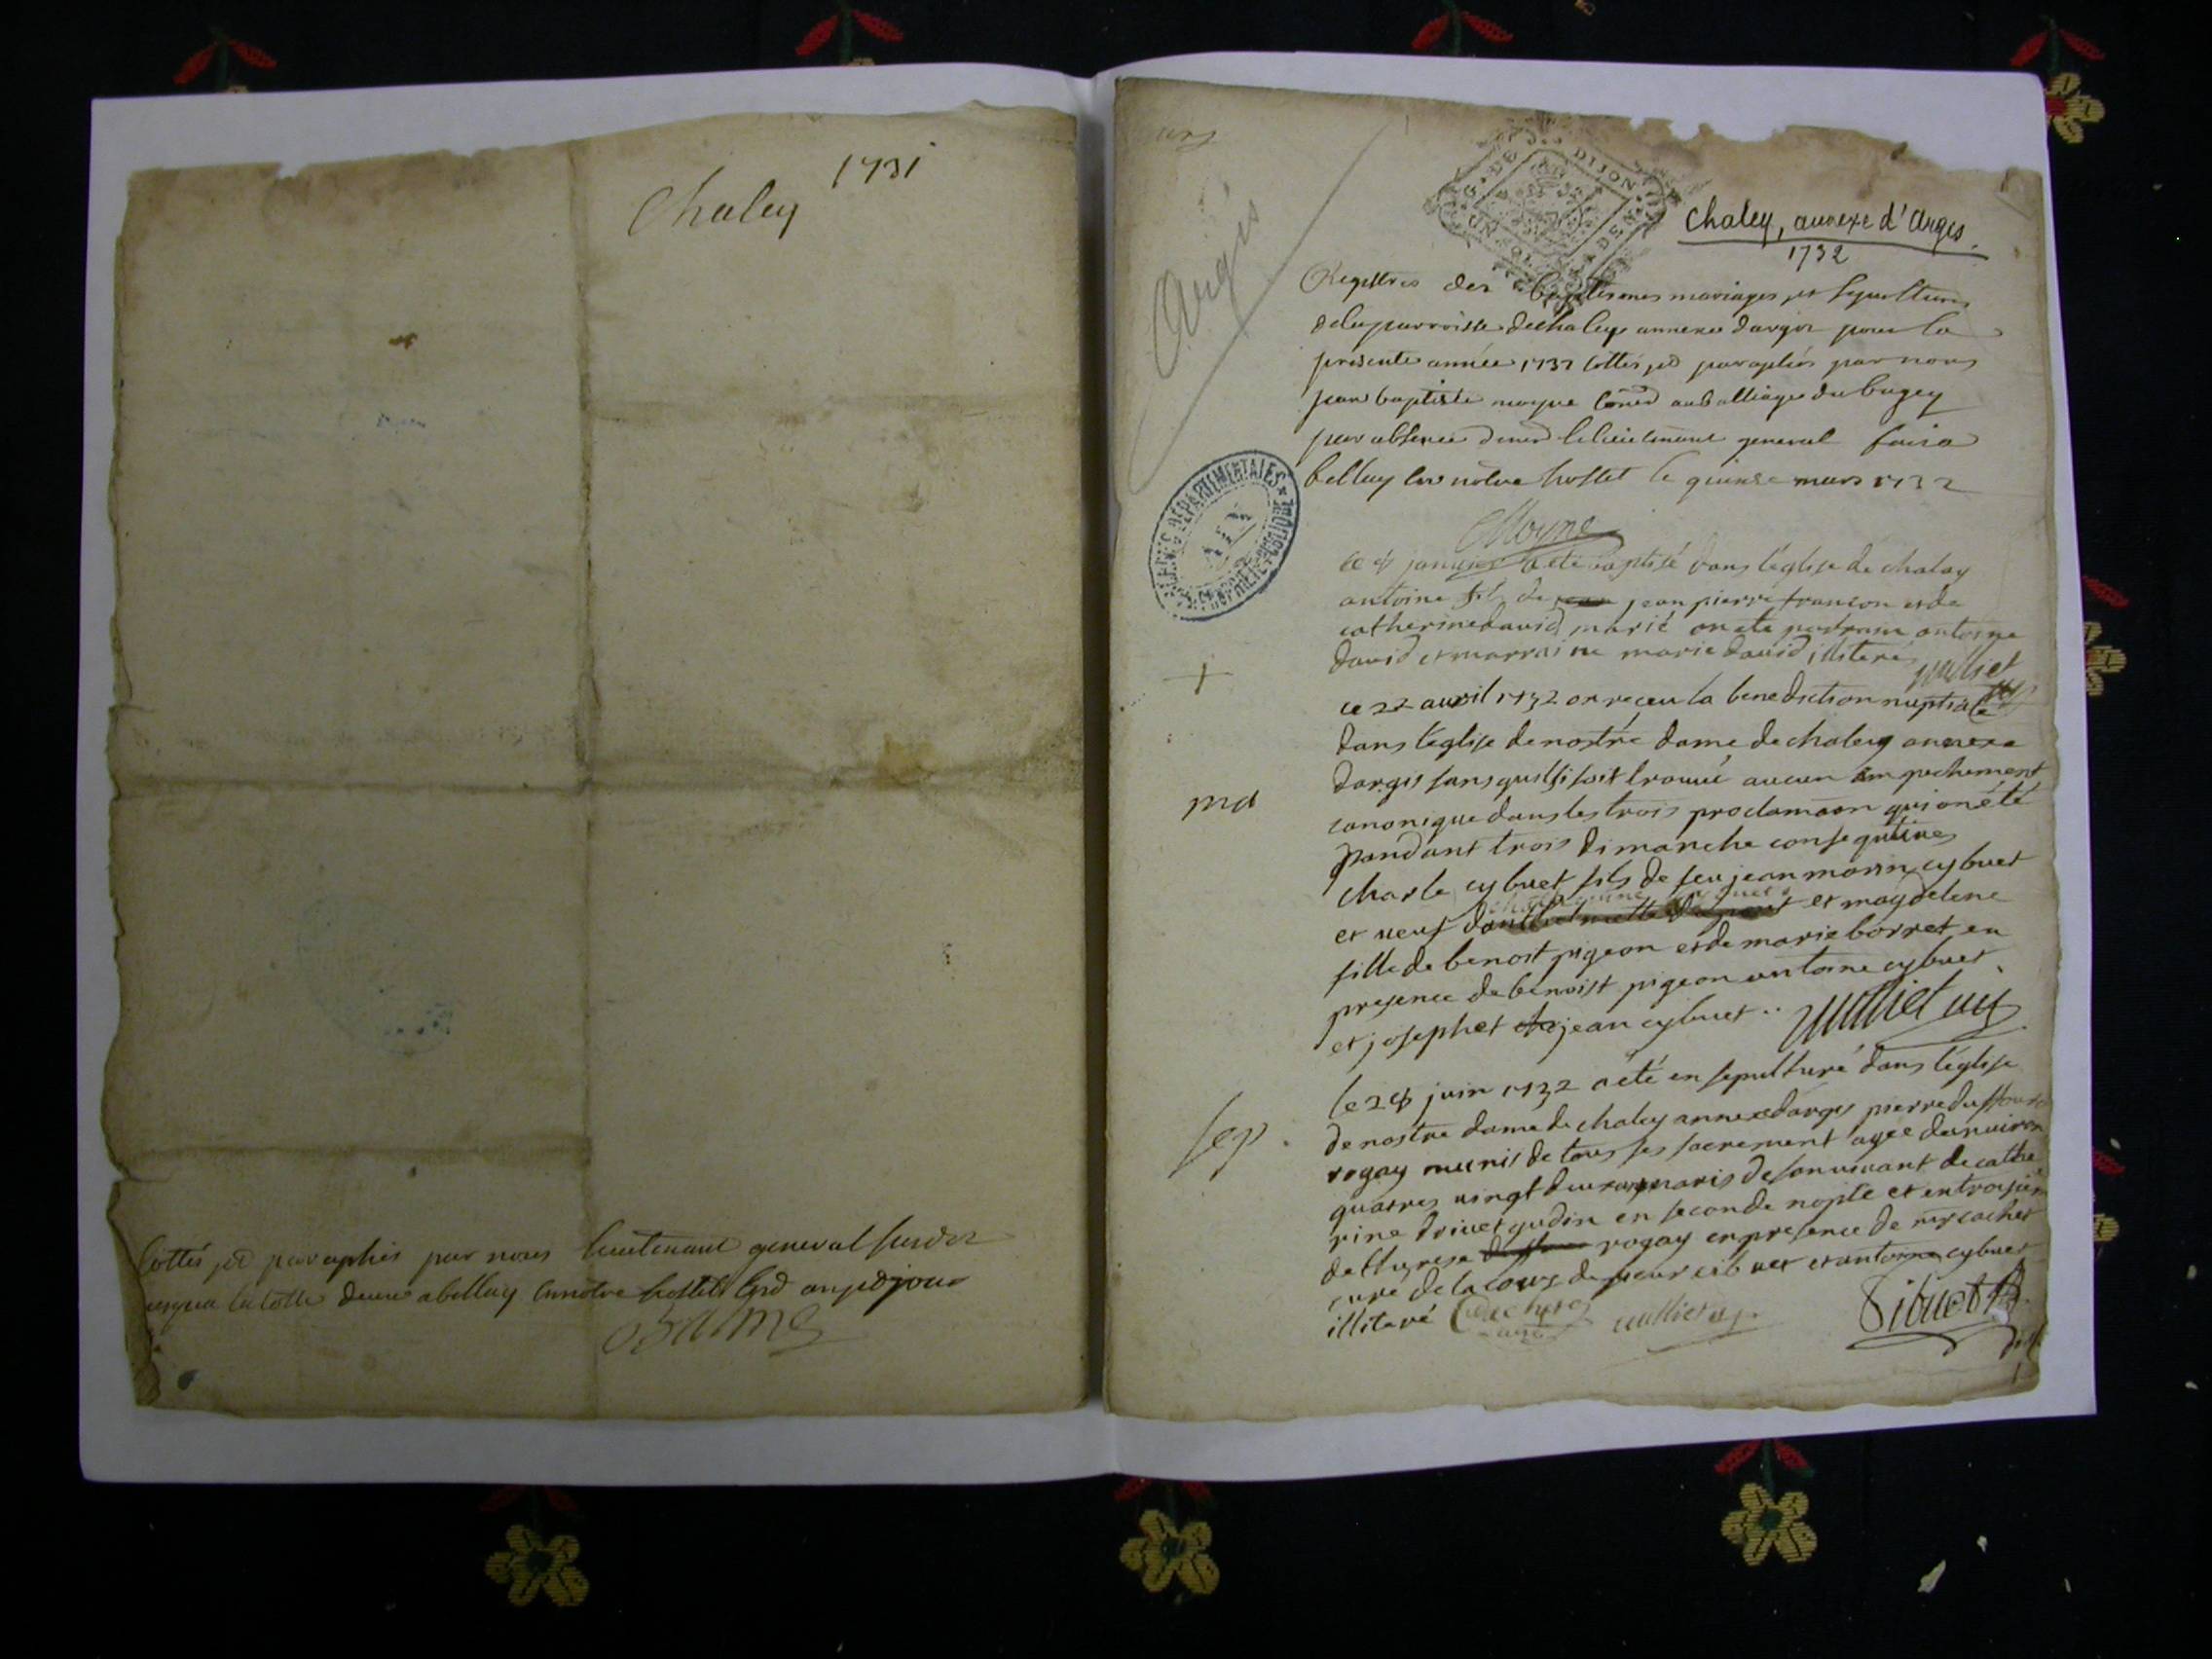 1731
Chaley
Cottés et paraphés par nous lieutenant general susdit
a bellay en notre hostel lesd an et jour
Balme
arg
Argis
DE DIJON
Chaley, annexe d'Argis.
1732
Registres des baptismes mariages et sepultures
de la parroisse de chaley annexe dargis pour la
présente année 1732 cottés et paraphés par nous
jean baptiste moyne au balliage du bugey
par absence le lieutenant general fait a
bellay en notre hostel le quinse mars 1732
Moyne
ARCHIVES DEPARTEMENTALES
AIN
PROPRIÉTÉ PUBLIQUE
ce 4 janvier a eté baptisé dans l'eglise de chaley
antoine fils de jean pierre françon et de
catherine david marié on eté parrain antoine
david et marraine marie david, illiteré
julliet
ce 22 avril 1732 on reçeu la benediction nuptiale
dans l'eglise de nostre dame de chaley annexe
dargis sans quil si soit trouué aucun empechement
ma
canonique dans les trois proclamaon qui on été
pandant trois dimanche consequtives
charle cybuet fils de feu jean marin cybuet
et veuf et magdelene
fille de benoit pigeon et de marie borret en
presence de benoist pigeon antoine cybuet
et joseph et jean cybuet ..
le 24 juin 1732 a été ensepulturé dans l'église
sep.
de nostre dame de chaley annexe dargis pierre
rogay munis de tous ses sacrement agée danuiron
quatres vingt deux ans maris de son viuant de cathe
rine en seconde nopte et en troisiem
de rogay en presence de
cure de la cour de sieur cibuet et antoine cybuet
illiteré
Sibuet